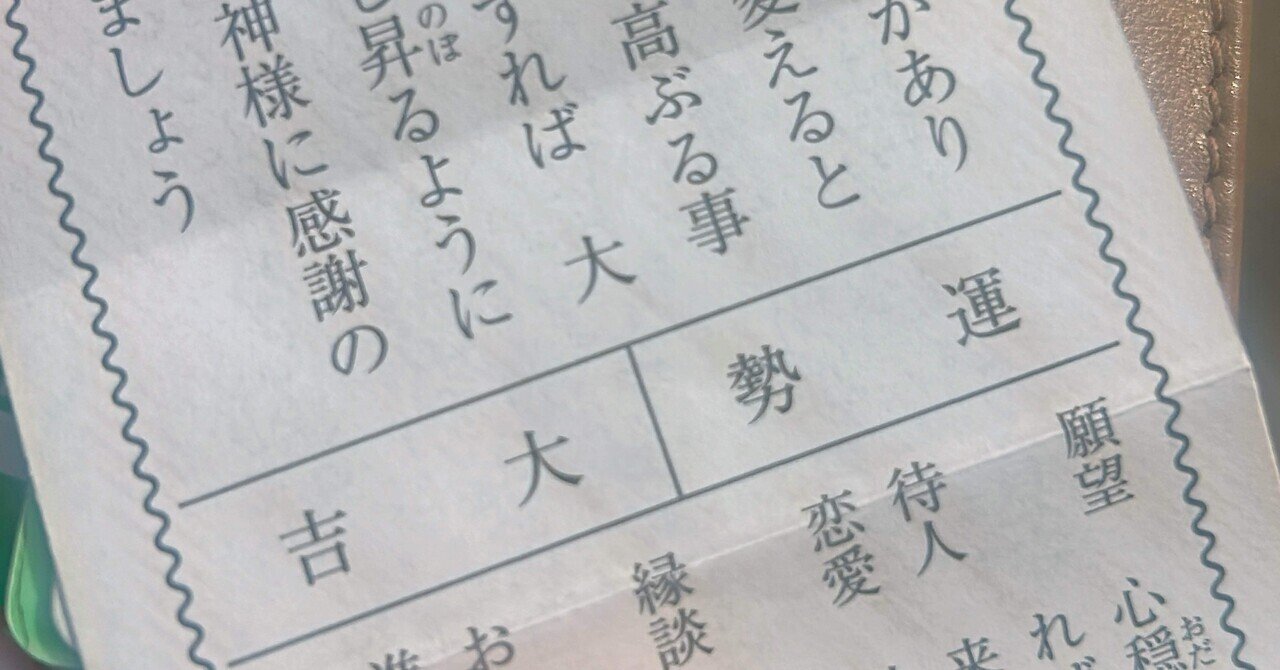 があり
変えると
高ぶる事
すれば 大
昇るように
のぼ
神様に感謝の
ましょう
運勢
大吉
願望
心穏
おだ
れ
待人
来
恋愛
縁談
お
進